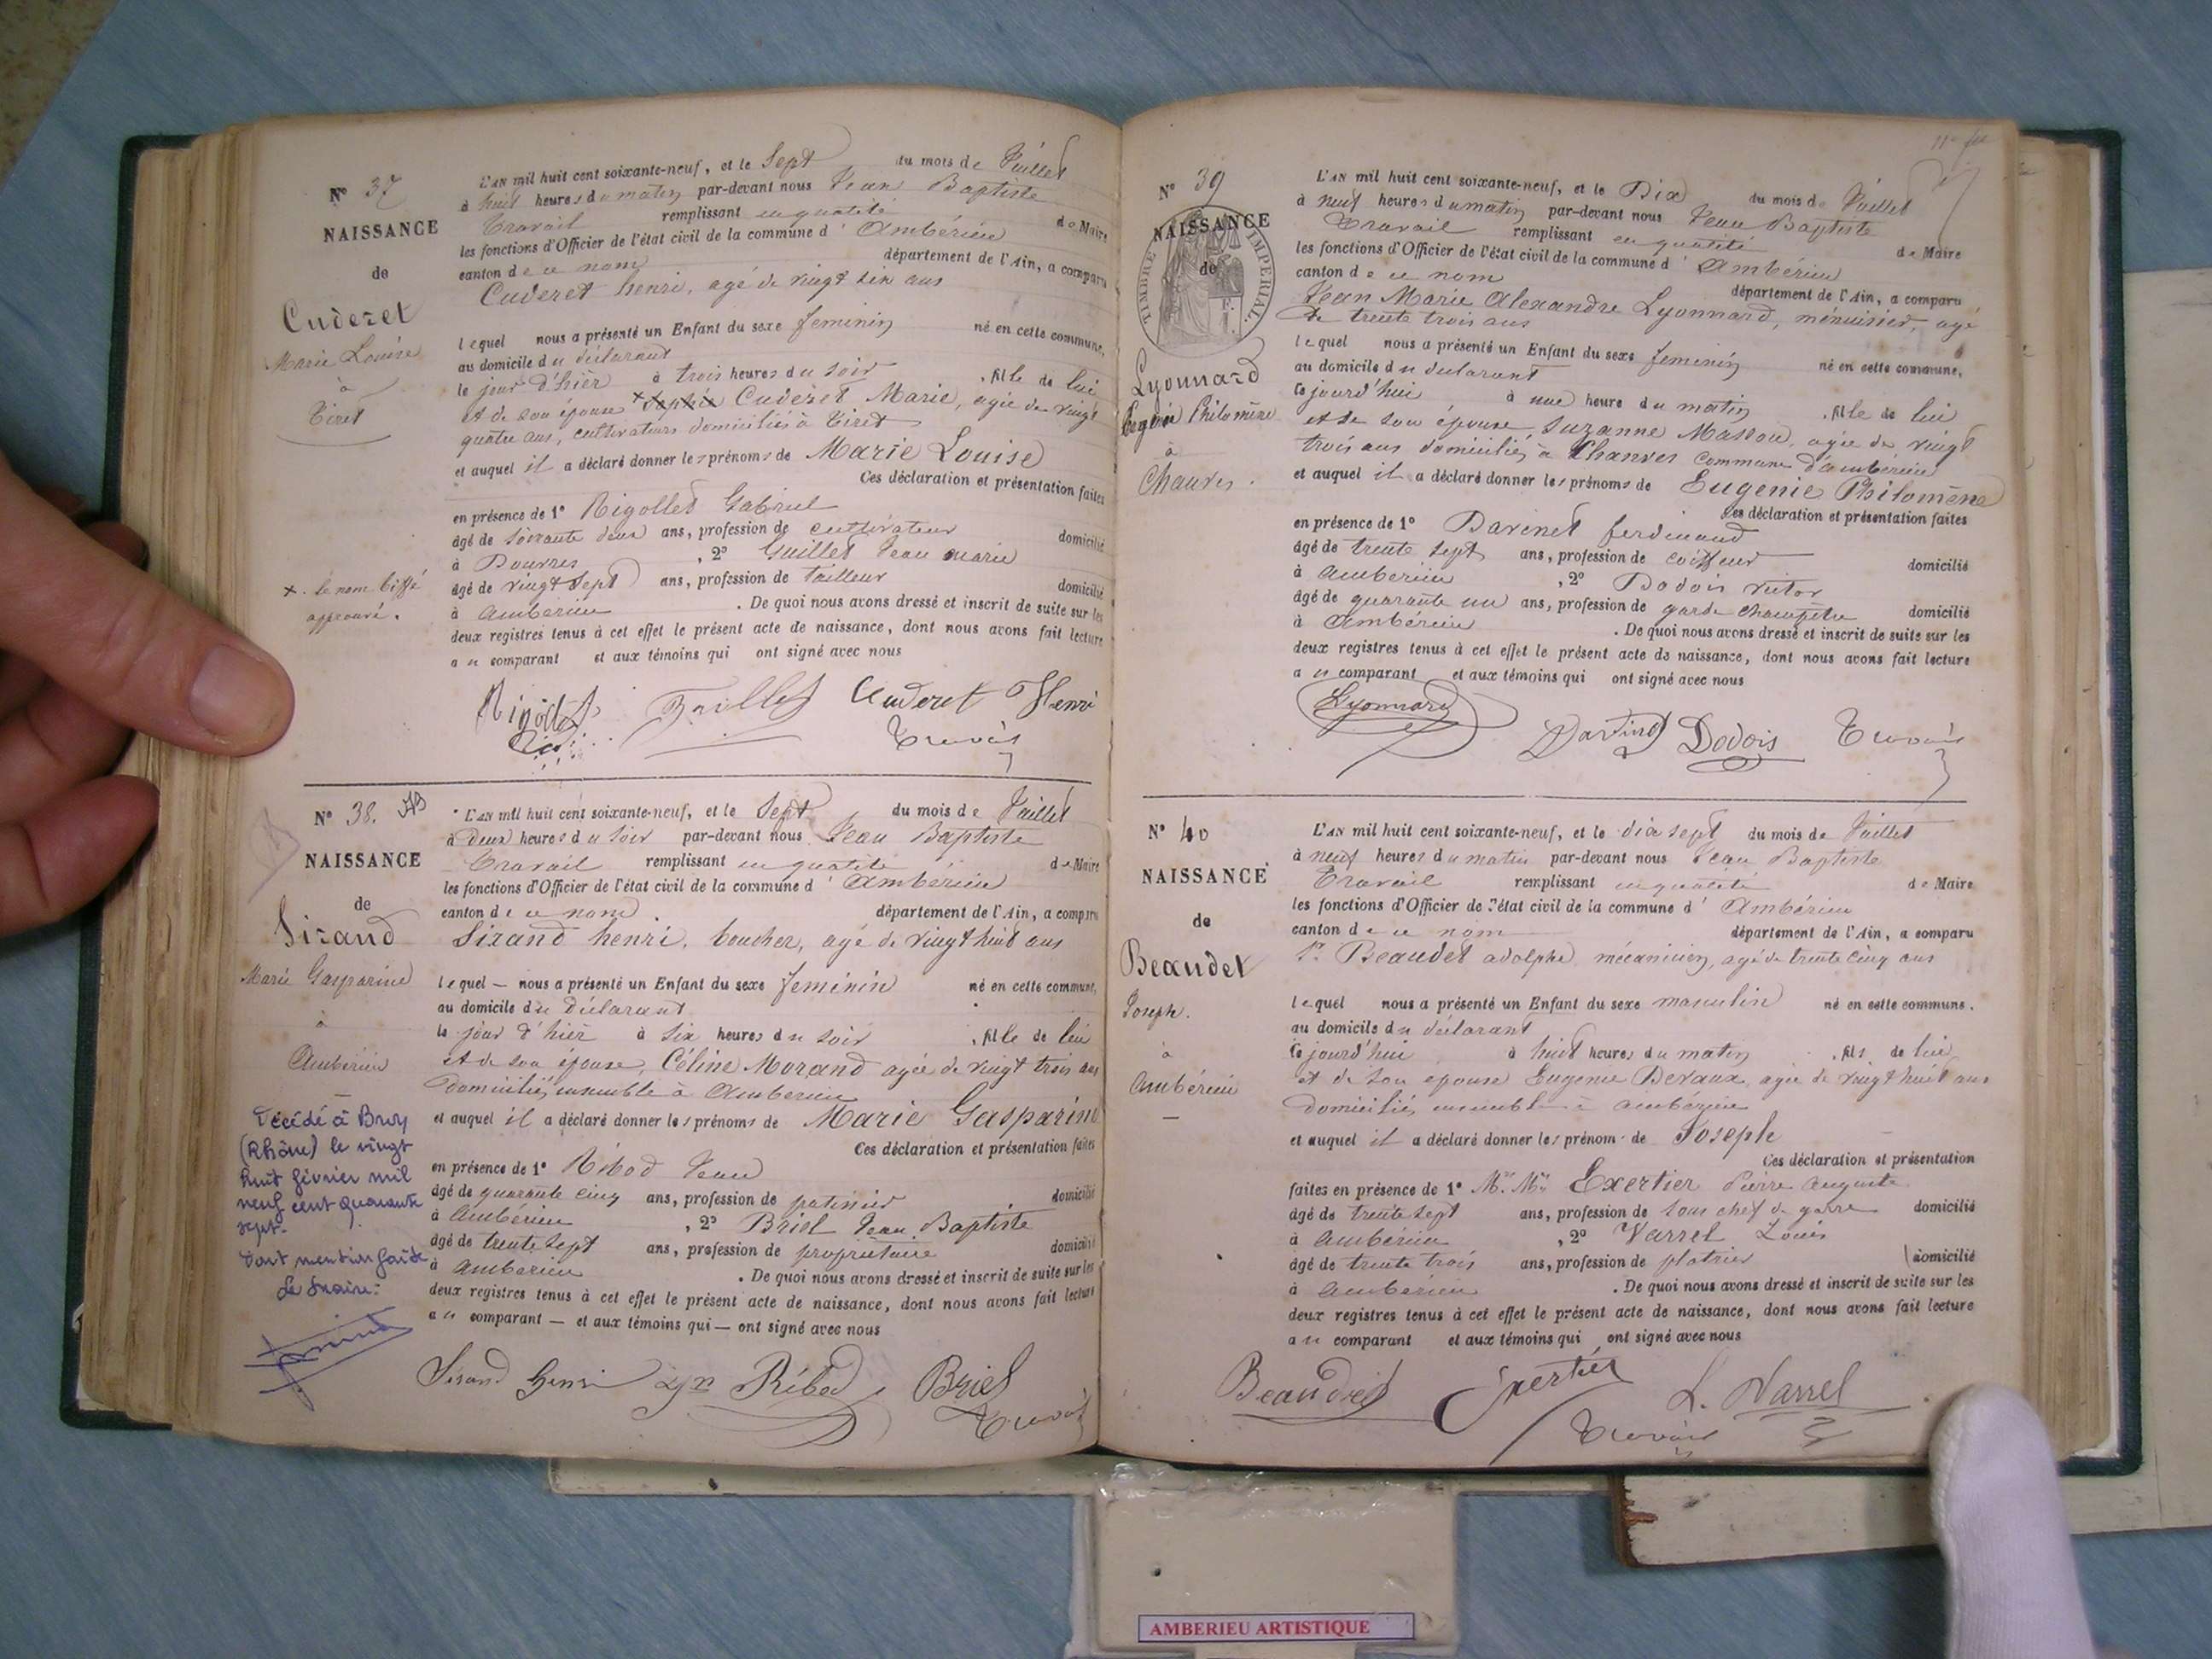 N° 37
NAISSANCE
de
Cuderet
Marie Louise
à
Tiret
x. le nom biffé
approuvé.
L'AN mil huit cent soixante-neuf, et le Sept du mois de Juillet
à huit heures du matin par-devant nous Jean Baptiste
Travail remplissant en qualité de Maire
les fonctions d'Officier de l'état civil de la commune d' Ambérieu
canton de ce nom département de l'Ain, a comparu
Cuderet henri, agé de vingt six ans
lequel nous a présenté un Enfant du sexe feminin né en cette commune,
au domicile du déclarant
le jour d'hier à trois heures du soir , fille de lui
et de son épouse x Sophie Cuderet Marie, agée de vingt
quatre ans, cultivateurs domiciliés à Tiret
et auquel il a déclaré donner les prénoms de Marie Louise
Ces déclaration et présentation faites
en présence de 1° Rigollet Gabriel
âgé de soixante deux ans, profession de cultivateur domicilié
à Douvres , 2° Guillet Jean marie
âgé de vingt sept ans, profession de tailleur domicilié
à Amberieu . De quoi nous avons dressé et inscrit de suite sur les
deux registres tenus à cet effet le présent acte de naissance, dont nous avons fait lecture
au comparant et aux témoins qui ont signé avec nous
Cuderet Henri
Travail
N° 38.
NAISSANCE
de
Sirand
Marie Gasparine
à
Ambérieu
Décédé à Bron
(Rhône) le vingt
huit février mil
neuf cent quarante
sept.
Dont mention faite
Le Maire:
L'AN mil huit cent soixante-neuf, et le Sept du mois de Juillet
à deux heures du soir par-devant nous Jean Baptiste
Travail remplissant en qualité de Maire
les fonctions d'Officier de l'état civil de la commune d' Ambérieu
canton de ce nom département de l'Ain, a comparu
Sirand henri, boucher, agé de vingt huit ans
lequel — nous a présenté un Enfant du sexe feminin né en cette commune,
au domicile du déclarant
le jour d'hier à six heures du soir , fille de lui
et de son épouse, Céline Morand agée de vingt trois ans
domiciliés ensemble à Amberieu
et auquel il a déclaré donner les prénoms de Marie Gasparine
Ces déclaration et présentation faites
en présence de 1° Ribod Jean
âgé de quarante cinq ans, profession de domicilié
à Ambérieu , 2° Briel Jean Baptiste
âgé de trente sept ans, profession de propriétaire domicilié
à Amberieu . De quoi nous avons dressé et inscrit de suite sur les
deux registres tenus à cet effet le présent acte de naissance, dont nous avons fait lecture
au comparant — et aux témoins qui — ont signé avec nous
Sirand Henri Ribod Briel
Travail
N° 39
NAISSANCE
de
TIMBRE IMPERIAL
Lyonnard
Eugénie Philomène
à
Chauves.
L'AN mil huit cent soixante-neuf, et le Dix du mois de Juillet
à neuf heures du matin par-devant nous Jean Baptiste
Travail remplissant en qualité de Maire
les fonctions d'Officier de l'état civil de la commune d' Ambérieu
canton de ce nom département de l'Ain, a comparu
Jean Marie Alexandre Lyonnard, menuisier, agé
de trente trois ans
lequel nous a présenté un Enfant du sexe feminin né en cette commune,
au domicile du déclarant
ce jourd'hui à une heure du matin , fille de lui
et de son épouse, Suzanne Masson, agée de vingt
trois ans domiciliés à Chanves commune d'ambérieu
et auquel il a déclaré donner les prénoms de Eugenie Philomène
Ces déclaration et présentation faites
en présence de 1° Davinet ferdinand
âgé de trente sept ans, profession de coiffeur domicilié
à Amberieu , 2° Dodois victor
âgé de quarante un ans, profession de garde champêtre domicilié
à Ambérieu . De quoi nous avons dressé et inscrit de suite sur les
deux registres tenus à cet effet le présent acte de naissance, dont nous avons fait lecture
au comparant et aux témoins qui ont signé avec nous
Lyonnard
Davinet Dodois Travail
N° 40
NAISSANCE
de
Beaudet
Joseph.
à
Ambérieu
L'AN mil huit cent soixante-neuf, et le dix sept du mois de Juillet
à neuf heures du matin par-devant nous Jean Baptiste
Travail remplissant en qualité de Maire
les fonctions d'Officier de l'état civil de la commune d' Ambérieu
canton de ce nom département de l'Ain, a comparu
Sr Beaudet adolphe mécanicien, agé de trente cinq ans
lequel nous a présenté un Enfant du sexe masculin né en cette commune.
au domicile du déclarant
ce jourd'hui à huit heures du matin , fils de lui
et de son epouse Eugenie Devaux, agée de vingt huit ans
domiciliés ensemble à ambérieu
et auquel il a déclaré donner le prénom de Joseph
Ces déclaration et présentation
faites en présence de 1° Exertier Pierre Auguste
âgé de trente sept ans, profession de sous chef de gare domicilié
à Ambérieu , 2° Varrel Louis
âgé de trente trois ans, profession de platrier domicilié
à Ambérieu . De quoi nous avons dressé et inscrit de suite sur les
deux registres tenus à cet effet le présent acte de naissance, dont nous avons fait lecture
au comparant et aux témoins qui ont signé avec nous
Beaudet Exertier L. Varrel
Travail
AMBERIEU ARTISTIQUE